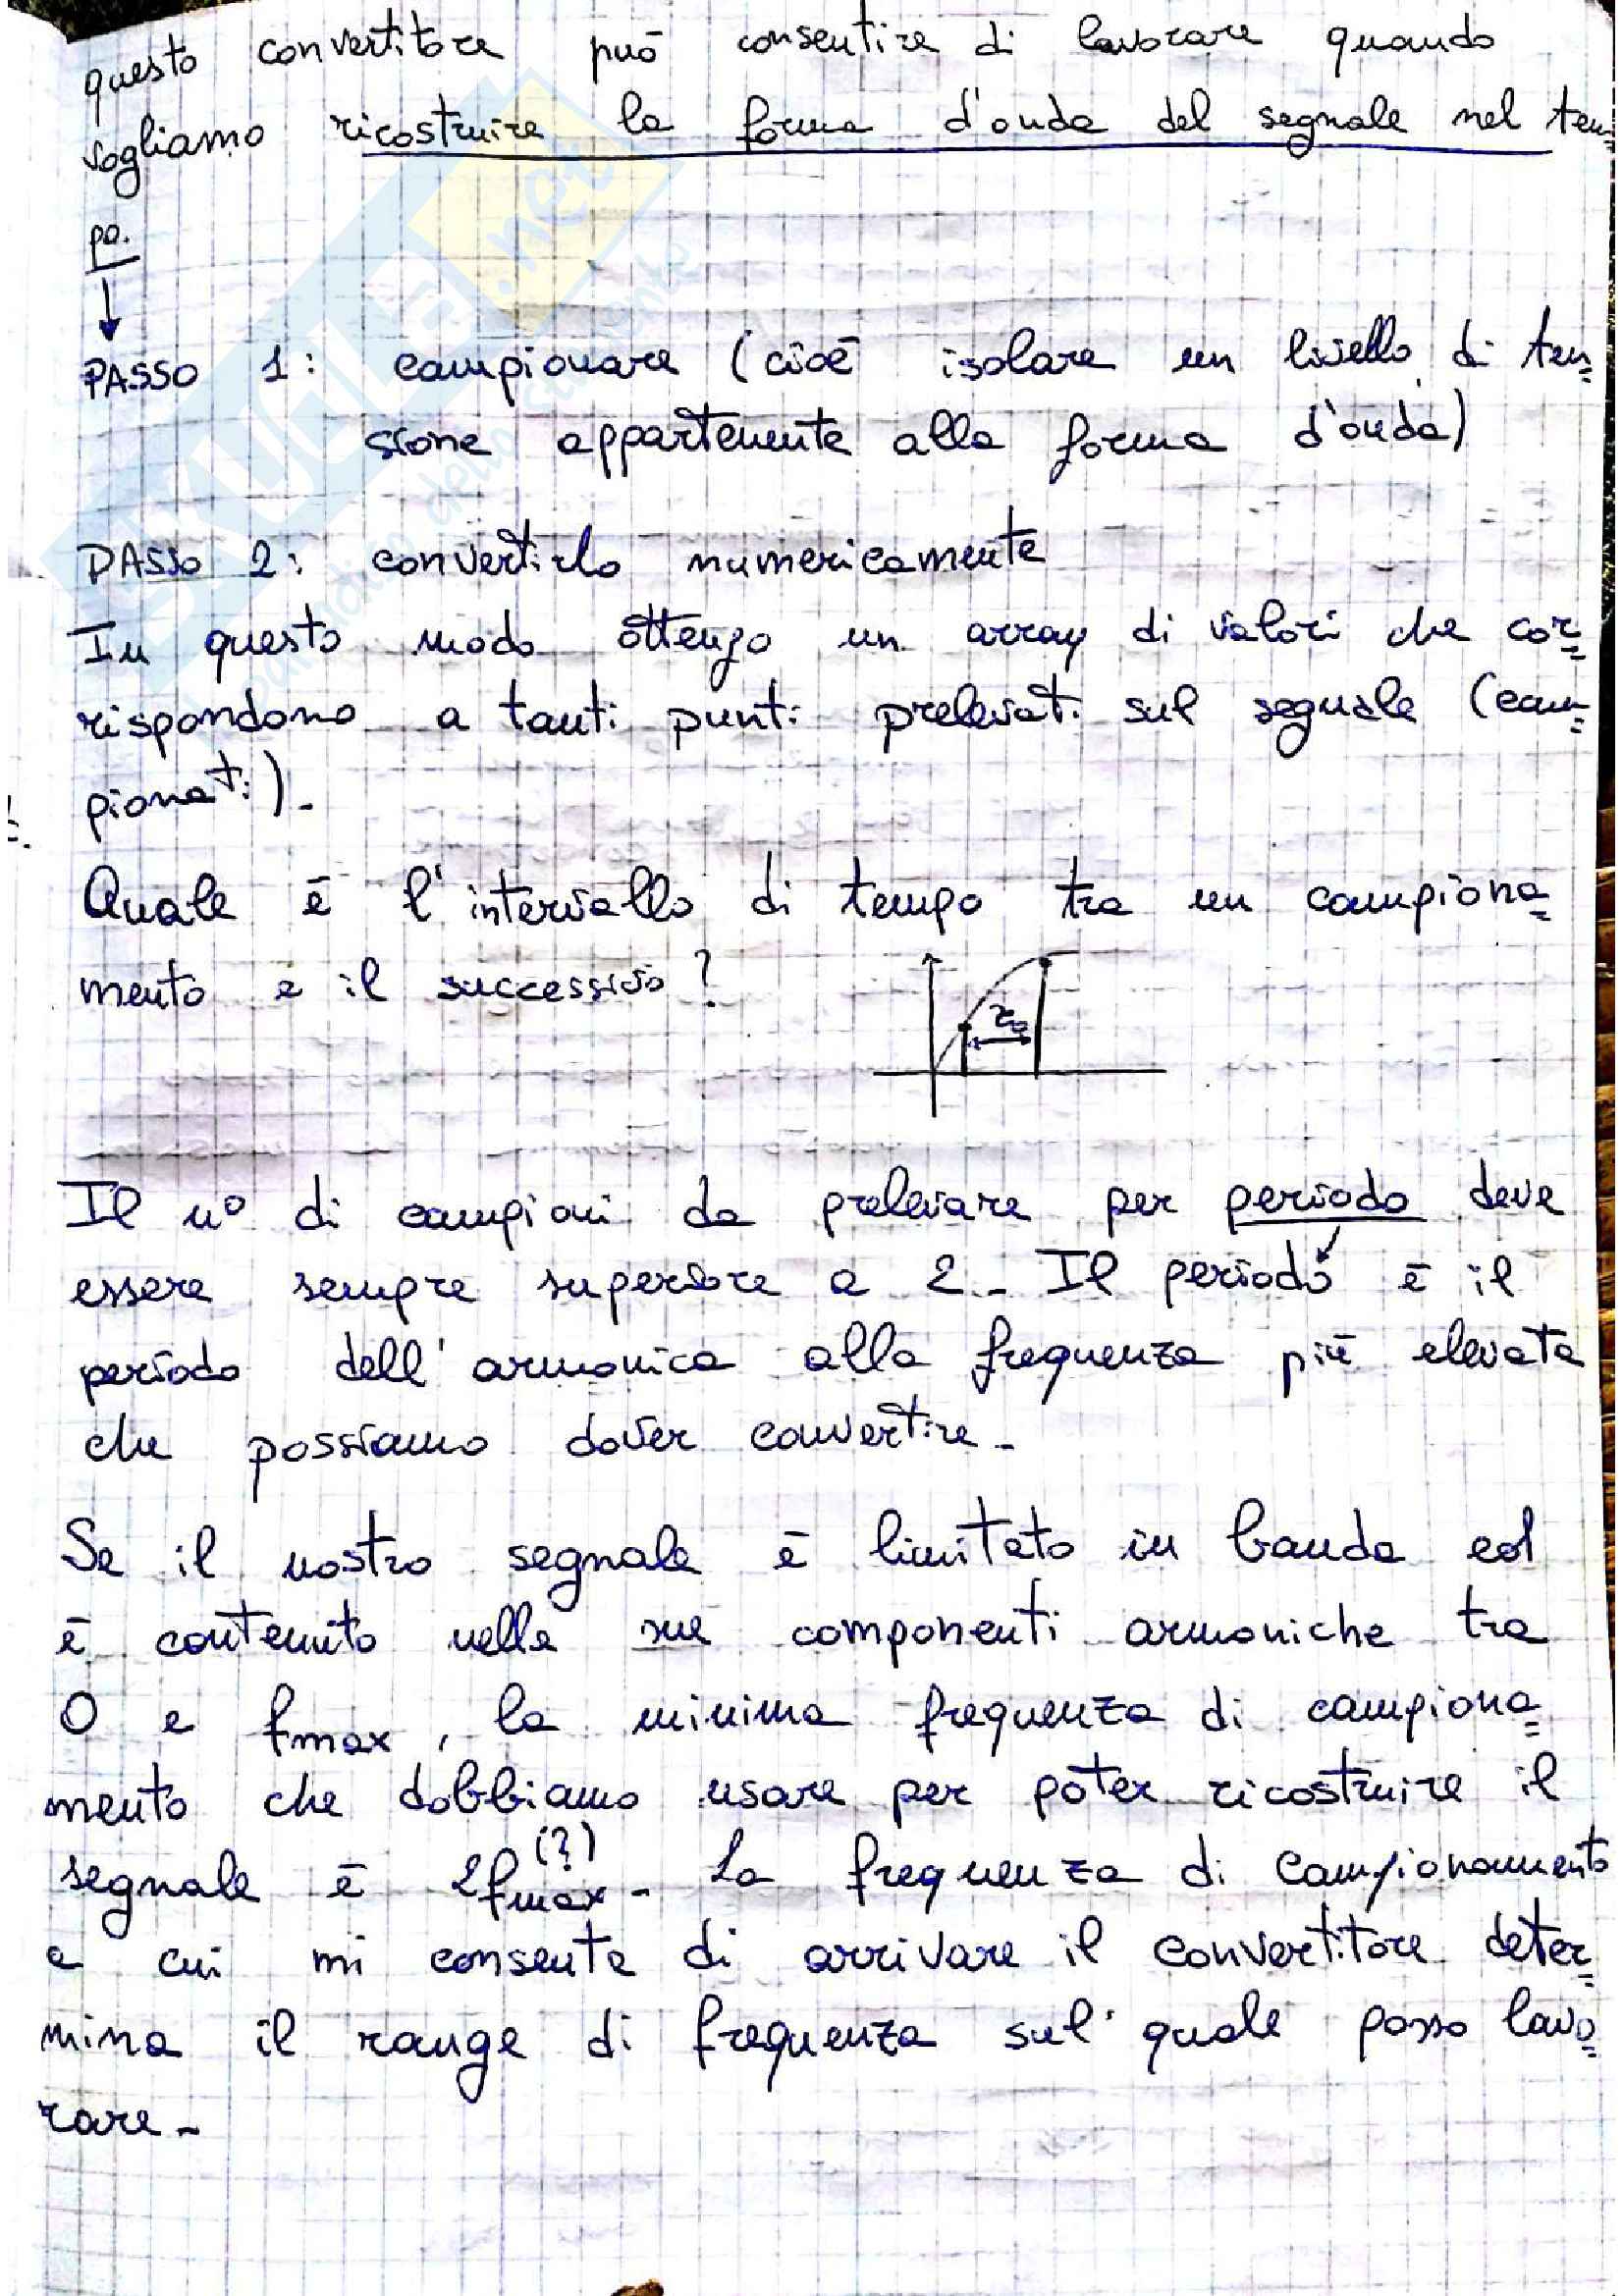 questo convertitore può consentire di lavorare quando
vogliamo ricostruire la forma d'onda del segnale nel tem=
po.
PASSO 1: campionare (cioè isolare un livello di ten=
sione appartenente alla forma d'onda)
PASSO 2: convertirlo numericamente
In questo modo ottengo un array di valori che cor=
rispondono a tanti punti prelevati sul segnale (cam=
pionati).
Quale è l'intervallo di tempo tra un campiona=
mento e il successivo?
Il n° di campioni da prelevare per periodo deve
essere sempre superiore a 2. Il periodo è il
periodo dell'armonica alla frequenza più elevata
che possiamo dover convertire.
Se il nostro segnale è limitato in banda ed
è contenuto nelle sue componenti armoniche tra
0 e fmax, la minima frequenza di campiona=
mento che dobbiamo usare per poter ricostruire il
segnale è 2fmax (?). La frequenza di campionamento
a cui mi consente di arrivare il convertitore deter=
mina il range di frequenza sul quale posso lavo=
rare.
SKUOLA.net